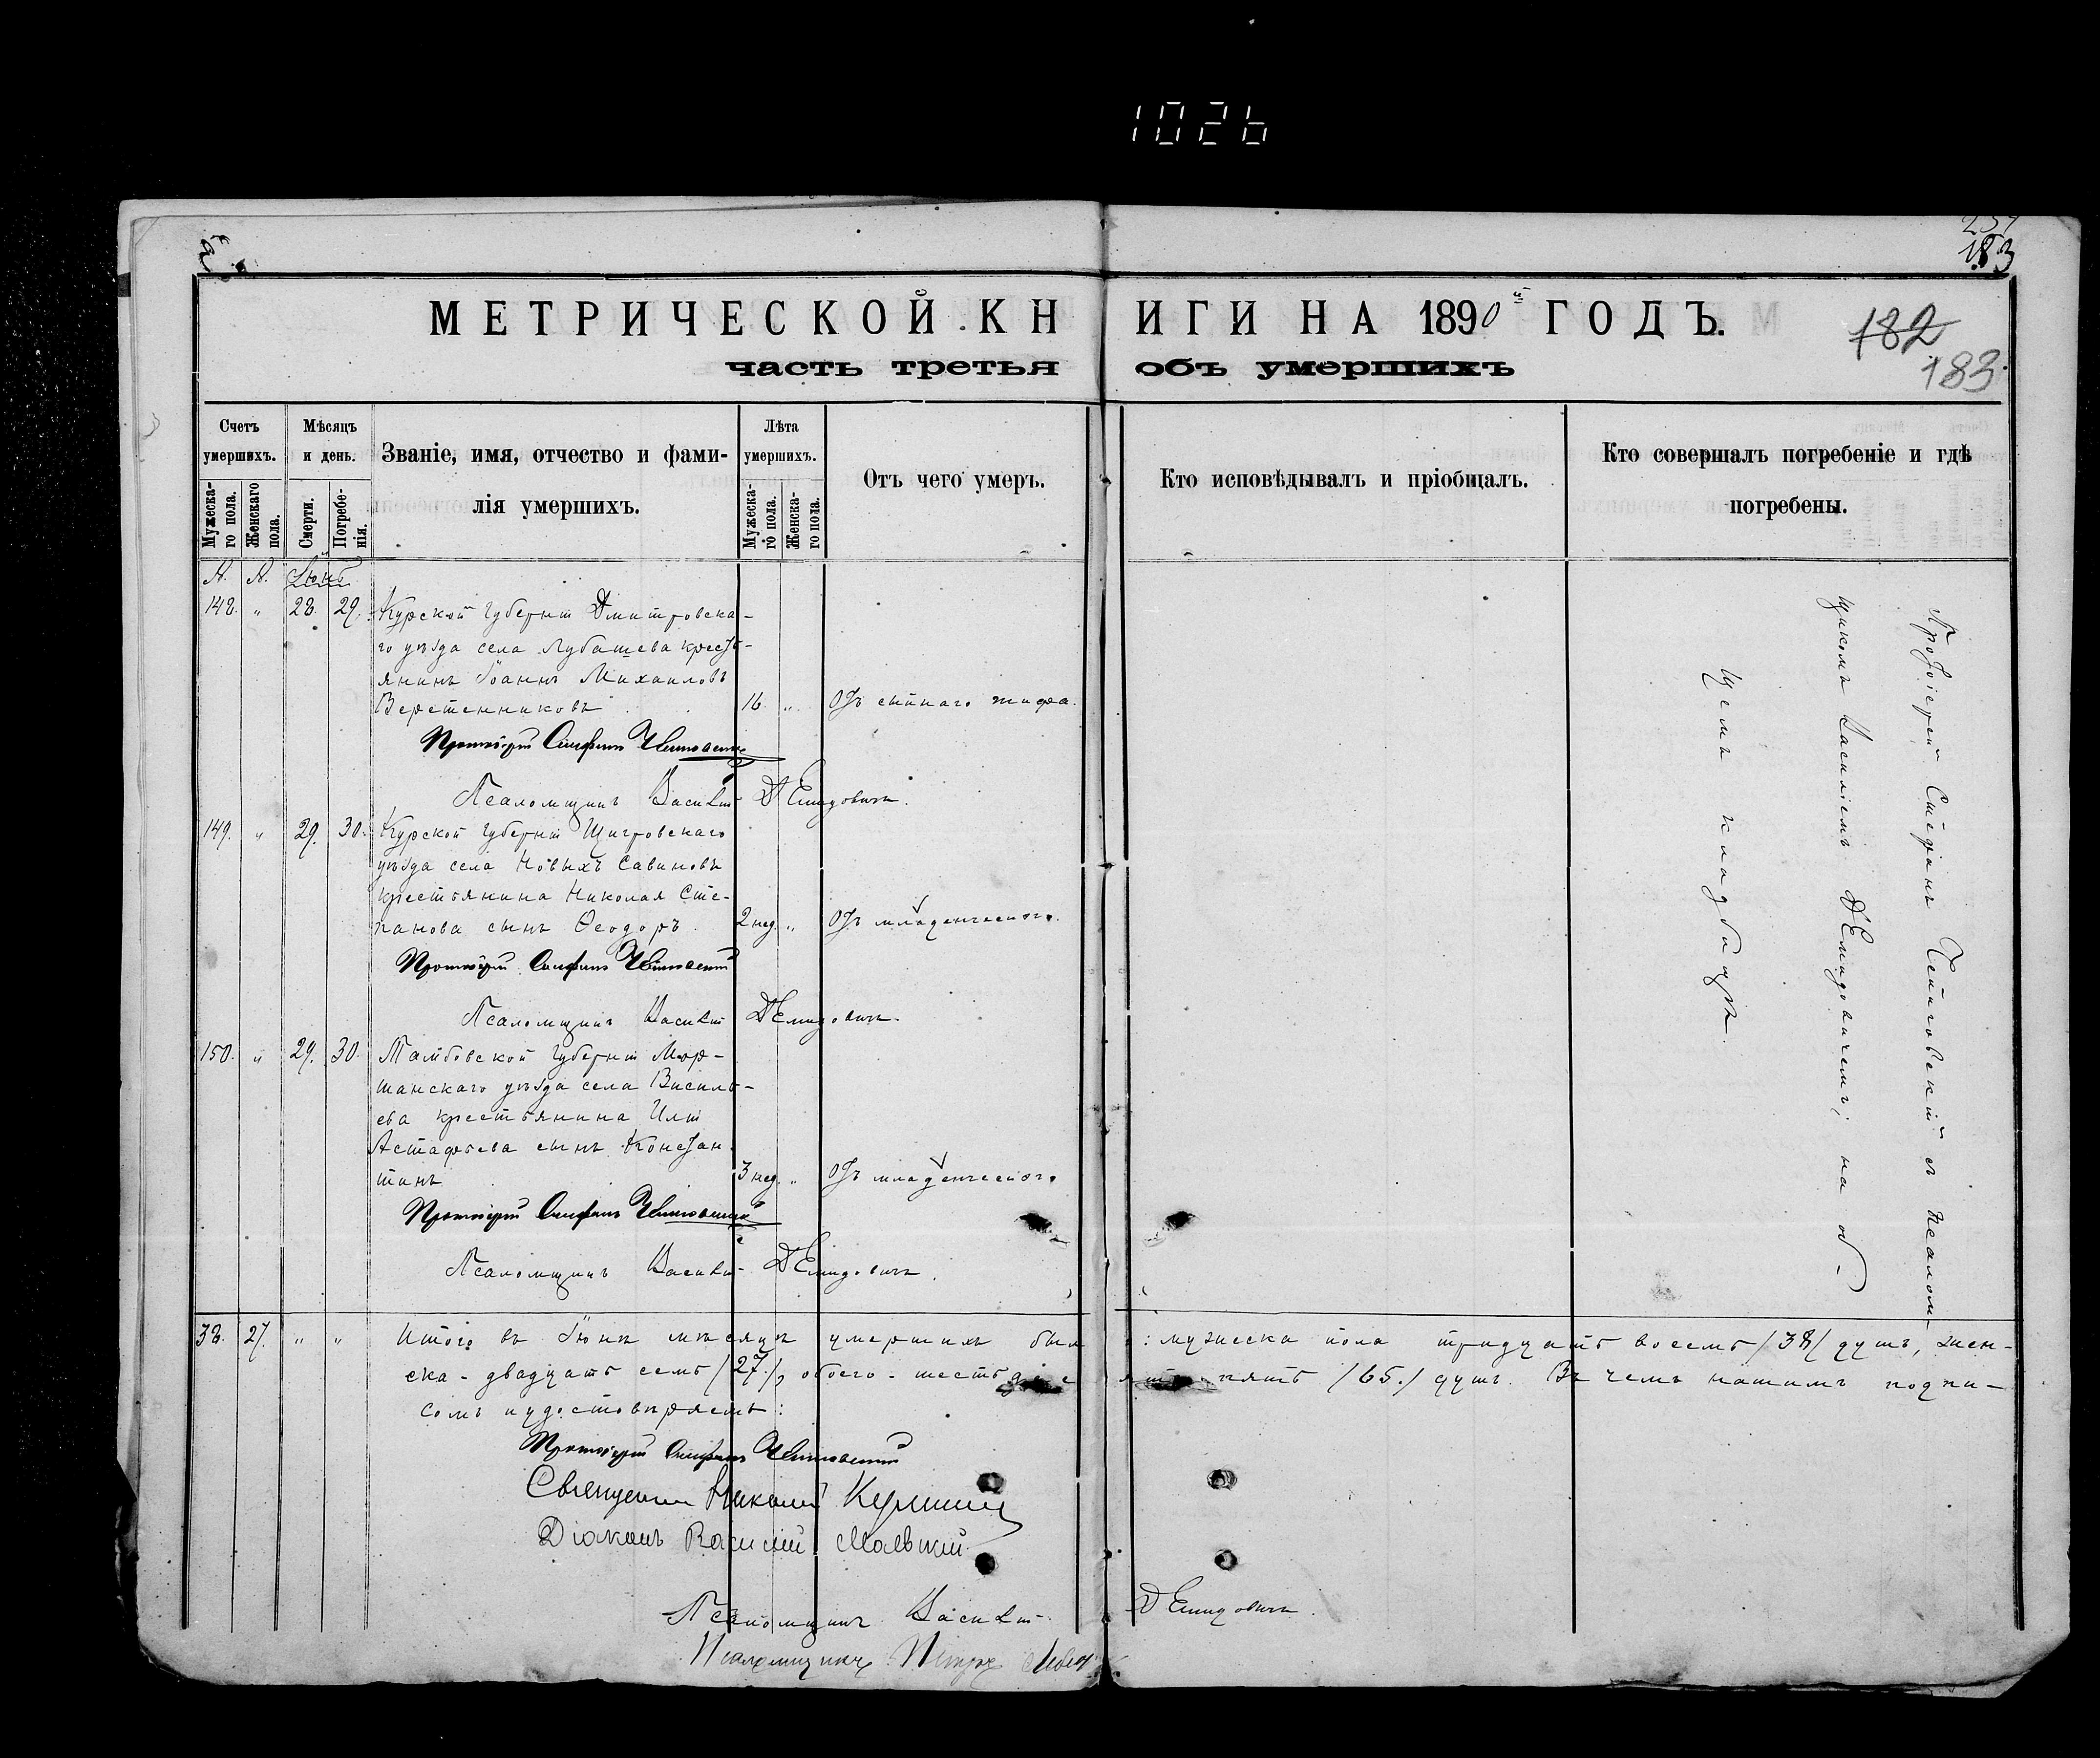 1026
183
МЕТРИЧЕСКОЙ КНИГИ НА 1890й ГОДЪ.
182
часть третья объ умершихъ
183.
Счетъ умершихъ.
Мужеска-го пола.
Женскаго пола.
Мѣсяцъ и день.
Смерти.
Погребе-нія.
Званіе, имя, отчество и фами-
лія умершихъ.
Лѣта умершихъ.
Мужеска-го пола.
Женска-го пола.
Отъ чего умеръ.
Кто исповѣдывалъ и пріобщалъ.
Кто совершалъ погребеніе и гдѣ
погребены.
Іюнь
148. „ 28. 29. Курской губерніи Дмитровска-
го уѣзда села Лубашева кресть-
янинъ Іоаннъ Михаиловъ
Веретенниковъ. 16. „ Отъ сыпного тифа.
Протоіерей Стефанъ
Псаломщикъ Василій Демидовичъ.
149. „ 29. 30. Курской губерніи Щигровскаго
уѣзда села Новыхъ Савиновъ
крестьянина Николая Сте-
панова сынъ Ѳеодоръ. 2 нед. „ Отъ младенческого.
Протоіерей Стефанъ
Псаломщикъ Василій Демидовичъ.
150. „ 29. 30. Тамбовской губерніи Мор-
шанскаго уѣзда села Василь-
ева крестьянина Иліи
Астафьева сынъ Констан-
тинъ 3 нед. „ Отъ младенческого
Протоіерей Стефанъ
Псаломщикъ Василій Демидовичъ.
Протоіерей Стефанъ съ псалом-
щикомъ Василіемъ Демидовичемъ; на об-
щемъ кладбищѣ.
38. 27. „ „ Итого въ Іюнѣ мѣсяцѣ умершихъ было: мужеска пола тридцать восемь /38/ душъ, жен-
ска - двадцать семь /27./, обоего - шестьдесятъ пять /65./ душъ. Въ чемъ нашимъ подпи-
сомъ и удостовѣряемъ:
Протоіерей Стефанъ
Священникъ Николай
Діаконъ Василій
Псаломщикъ Василій Демидовичъ.
Псаломщикъ Петръ